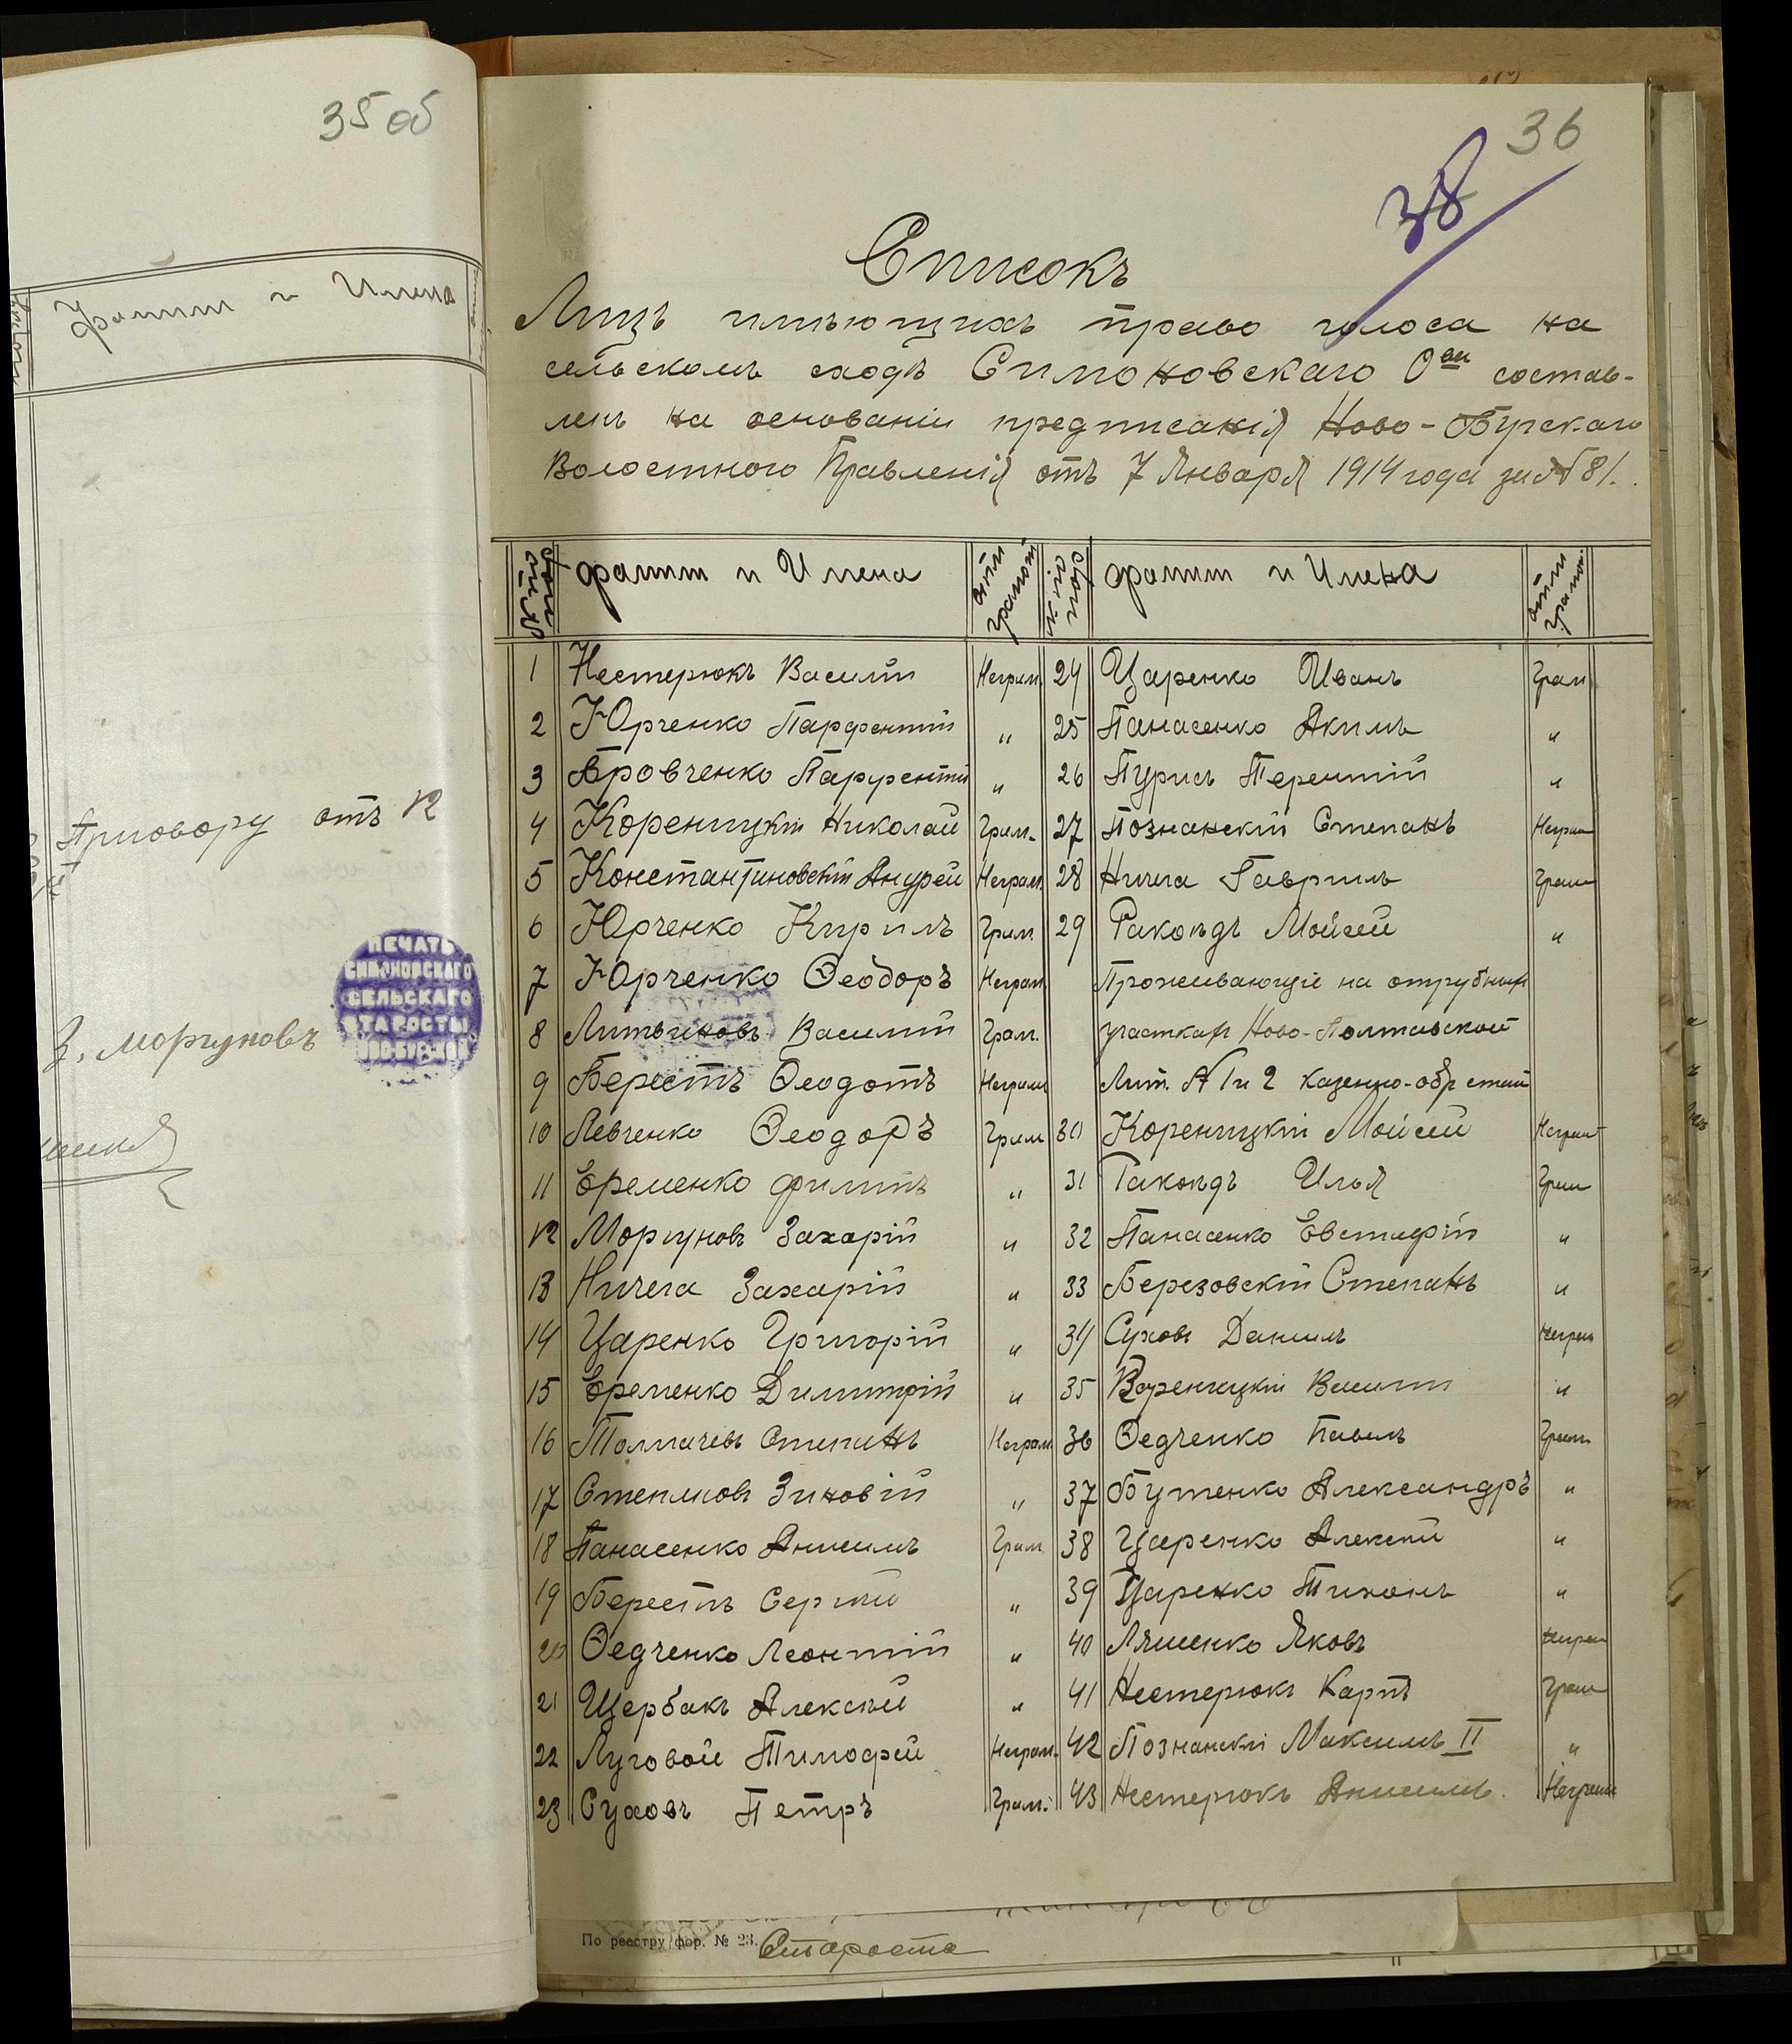 35 об
Фамилии и Имена
Приговору отъ 12
З. Моргуновъ
ПЕЧАТЬ
СИМОНОВСКАГО
СЕЛЬСКАГО
СТАРОСТЫ
36
38
Списокъ
Лицъ имѣющихъ право голоса на
сельскомъ сходѣ Симоновскаго О-ва состав-
ленъ на основаніи предписанія Ново-Бурскаго
Волостного Правленія отъ 7 Января 1914 года за № 81.
Фамиліи и Имена № по Фамиліи и Имена
1 Нестерюкъ Василій Неграм. 24 Царенко Иванъ Грам
2 Юрченко Парфентій " 25 Панасенко Акимъ "
3 Бровченко Парфентій " 26 Пурисъ Терентій "
4 Кореницкій Николай Грам. 27 Познанскій Степанъ Неграм
5 Константиновскій Андрей Неграм. 28 Ничега Гавриилъ Грам
6 Юрченко Кирилъ Грам. 29 Ракоѣдъ Мойсей "
7 Юрченко Ѳеодоръ Неграм. Проживающіе на отрубныхъ
8 Литвиновъ Василій Грам. участкахъ Ново-Полтавской
9 Берестъ Ѳеодотъ Неграм Лит. А 1 и 2 казенно-обр статьи
10 Левченко Ѳеодоръ Грам 30 Кореницкій Мойсей Неграм
11 Еременко Филипъ " 31 Ракоѣдъ Илья Грам
12 Моргуновъ Захарій " 32 Панасенко Евстафій "
13 Ничега Захарій " 33 Березовскій Степанъ "
14 Царенко Григорій " 34 Суховъ Данилъ Неграм
15 Еременко Димитрій " 35 Кореницкій Василій "
16 Толмачевъ Степанъ Неграм 36 Ѳедченко Павелъ Грам
17 Степановъ Зиновій " 37 Бутенко Александръ "
18 Панасенко Анисимъ Грам 38 Царенко Алексѣй "
19 Берестъ Сергѣй " 39 Царенко Тихонъ "
20 Ѳедченко Леонтій " 40 Ляшенко Яковъ Неграм
21 Щербакъ Алексѣй " 41 Нестерюкъ Карпъ Грам
22 Луговой Тимофей Неграм. 42 Познанскі Максимъ II "
23 Суховъ Петръ Грам. 43 Нестерюкъ Анисимъ. Неграм
По реестру фор. № 23. Староста